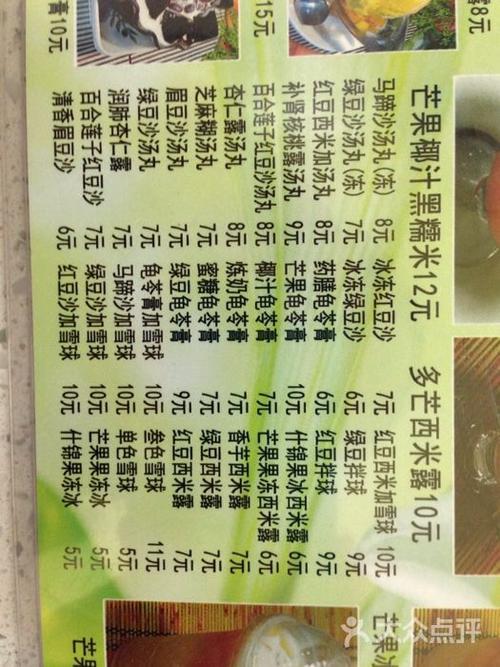 露8元
芒果冰
芒果椰汁黑糯米12元 多芒西米露10元
马蹄沙汤丸(冻) 8元 冰冻红豆沙 7元 红豆西米加雪球 10元
绿豆沙汤丸(冻) 7元 冰冻绿豆沙 6元 绿豆拌球 9元
红豆西米加汤丸 8元 药膳龟苓膏 6元 红豆拌球 9元
补肾核桃露汤丸 9元 芒果龟苓膏 10元 什锦果冰西米露 6元
15元 百合莲子红豆沙汤丸 8元 椰汁龟苓膏 7元 芒果果冻西米露 6元
杏仁露汤丸 8元 炼奶龟苓膏 7元 香芋西米露 7元
芝麻糊汤丸 7元 蜜糖龟苓膏 7元 绿豆西米露 7元
眉豆沙汤丸 7元 绿豆龟苓膏 9元 红豆西米露 7元
绿豆沙汤丸 7元 龟苓膏加雪球 10元 叁色雪球 11元
润肺杏仁露 7元 马蹄沙加雪球 10元 单色雪球 5元
百合莲子红豆沙 7元 绿豆沙加雪球 10元 芒果果冻冰 5元
膏10元 清香眉豆沙 6元 红豆沙加雪球 10元 什锦果冻冰 5元
芒果
大众点评